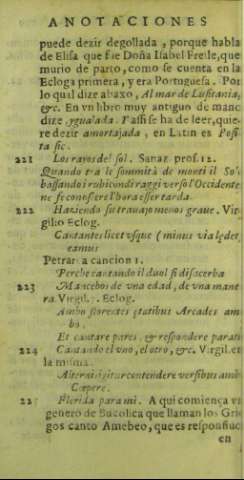 ANOTACIONES
puede dezir degollada, porque habla
de Elisa que fue Doña Isabel Freile, que
murio de parto, como se cuenta en la
Ecloga primera, y era Portuguesa. Por
lo qual dize abaxo, Al mar de Lusitania,
&c. En vn libro muy antiguo de mano
dize ygualada. Y assi se ha de leer, quie-
re dezir amortajada, en Latin es Posi-
ta sic.
221 Los rayos del sol. Sanaz. pros. 12.
Quando tra le sommità de monti il So
bassando i rubicondi raggi verso l'Occidente
ne fe conoscere l'hora esser tarda.
222 Haziendo su trauajo menos graue. Vir-
gilio Eclog.
Cantantes licet vsque (minus via lędet)
eamus
Petrar a cancion 1.
Perche cantando il duol si disacerba
223 Mancebos de vna edad, de vna mane-
ra. Virgil. Eclog.
Ambo florentes ętatibus Arcades am-
bo,
Et cantare pares, & respondere parati
224 Cantando el vno, el otro, &c. Virgil. en
la misma.
Alternis igitur contendere versibus ambo
Cœpere.
225 Flerida para mi. A qui comiença vn
genero de Bucolica que llaman los Grie
gos canto Amebeo, que es responsiuo
en